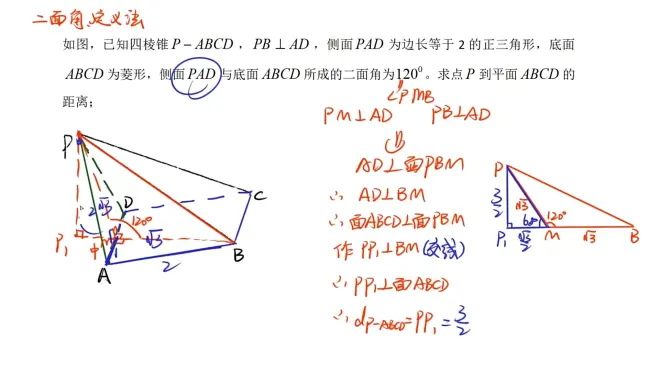 二面角定义法
如图，已知四棱锥 P－ABCD，PB⊥AD，侧面 PAD 为边长等于 2 的正三角形，底面
ABCD 为菱形，侧面 PAD 与底面 ABCD 所成的二面角为120⁰。求点 P 到平面 ABCD 的
距离；
∠PMB
PM⊥AD PB⊥AD
⇓
AD⊥面PBM
∴ AD⊥BM
∴面ABCD⊥面PBM
作 PP₁⊥BM(交线)
∴ PP₁⊥面ABCD
∴ dP-ABCD=PP₁=3/2
P
D
C
2
√3
120°
P₁
√3
B
A
2
P
3/2
√3
60°
120°
P₁
√3/2
M
√3
B